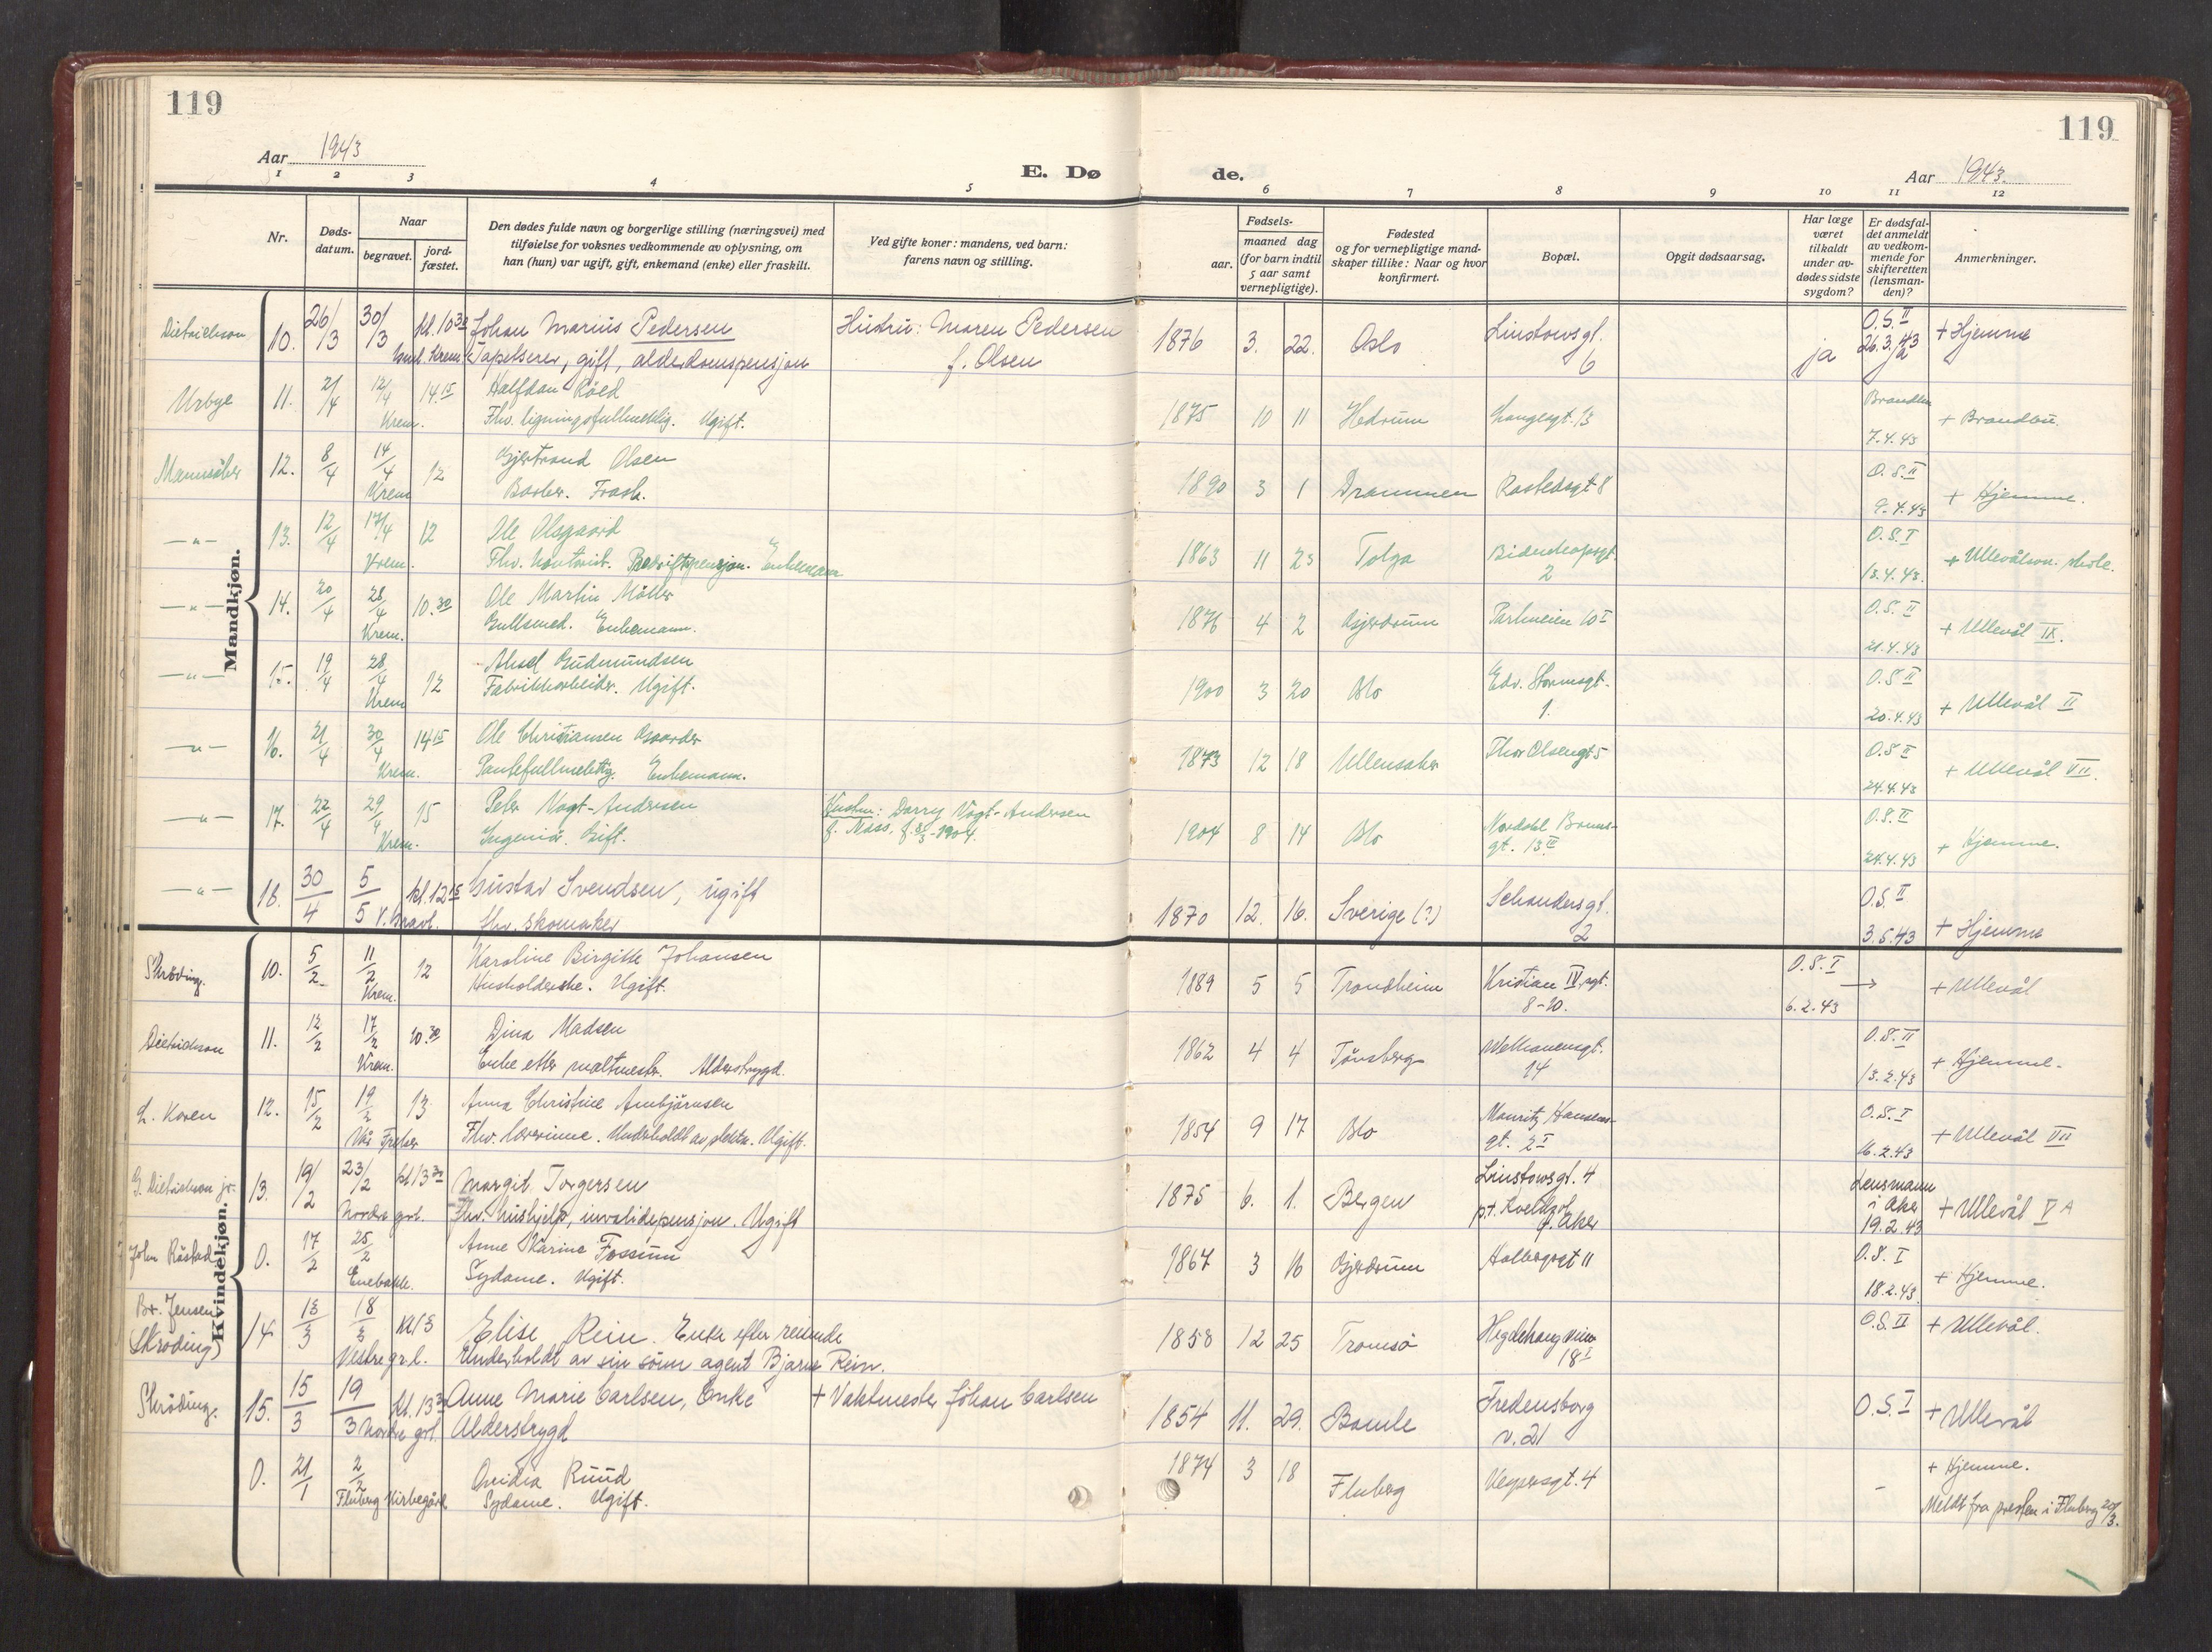 119
119
Aar 1943
E. Døde.
Aar 1943.
1 2 3 4 5 6 7 8 9 10 11 12
Nr.
Dødsdatum.
Naar
begravet.
jordfæstet.
Den dødes fulde navn og borgerlige stilling (næringsvei) med
tilføielse for voksnes vedkommende av oplysning, om
han (hun) var ugift, gift, enkemand (enke) eller fraskilt.
Ved gifte koner: mandens, ved barn:
farens navn og stilling.
Fødsels-
aar.
maaned dag
(for barn indtil
5 aar samt
vernepligtige).
Fødested
og for vernepligtige mand-
skaper tillike: Naar og hvor
konfirmert.
Bopæl.
Opgit dødsaarsag.
Har læge
været
tilkaldt
under av-
dødes sidste
sygdom?
Er dødsfal-
det anmeldt
av vedkom-
mende for
skifteretten
(lensman-
den)?
Anmerkninger.
Mandkjøn.
Dietrichson 10. 26/3 30/3 kl. 10 30 Johan Marius Pedersen Hustru: Maren Pedersen 1876 3. 22. Oslo Linstowsgt. ja O.S. II + Hjemme
Krem. Tapetserer, gift, alderdomspensjon f. Olsen 6 26.3.43 ja
Urbye 11. 2/4 12/4 14.15 Halfdan Röed 1875 10 11 Hedrum Langesgt. 13 + Brandbu.
Krem. Fhv. ligningsfullmektig. Ugift. 7.4.43
12. 8/4 14/4 12 Gjertrand Olsen 1890 3 1 Drammen Rostedsgt 8 O.S. II + Hjemme.
Krem Barber. Frask. 9.4.43
—"— 13. 12/4 17/4 12 Ole Olsgaard 1863 11 23 Tolga O.S. I + Ullevålsv. skole.
Krem. Fhv. kontorist. Bedriftspensjon. Enkemann 2 13.4.43.
—"— 14. 20/4 28/4 10.30 Ole Martin Möller 1876 4 2 Gjerdrum Parkveien 10 I O.S. II + Ullevål IX.
Krem. Gullsmed. Enkemann. 21.4.43
—"— 15. 19/4 28/4 12 Aksel Gudmundsen 1900 3 20 Oslo Edv. Stormsgt. O.S II + Ullevål II
Krem Fabrikkarbeider. Ugift. 1. 20.4.43
—"— 16. 21/4 30/4 14 15 Ole Christiansen 1873 12 18 Ullensaker Thor Olsensgt 5 O.S II + Ullevål VII.
Krem. Pantefullmektig. Enkemann. 24.4.43
—"— 17. 22/4 29/4 15 Peter Vogt-Andersen Hustru: Dorry Vogt-Andersen 1904 8 14 Oslo Nordahl Bruns- O.S. II + Hjemme.
Krem. Ingeniör. Gift. gt. 13 III 24.4.43
—"— 18. 30/4 5/5 kl. 12 15 Gustav Svendsen, ugift 1870 12. 16. Sverige (?) Schandersgt. O.S. II + Hjemme
V. Gravl. fhv. skomaker 2 3.5.43
Kvindekjøn.
Skröding. 10. 5/2 11/2 12 Karoline Birgitte Johansen 1889 5 5 Trondheim Kristian IV. sgt. O.S. I → + Ullevål
Krem. Husholderske. Ugift. 8-10. 6.2.43
Dietrichson 11. 12/2 17/2 10.30 Dina Madsen 1862 4 4 Tönsberg Welhavensgt. O.S. II + Hjemme.
Krem. Enke etter maltmester. Alderstrygd. 14 13.2.43
L. Koren 12. 15/2 19/2 13 Anna Christine Arnbjörnsen 1854 9 17 Oslo Mauritz Hansens- O.S. I + Ullevål VII
Vår Frelser Fhv. lærerinne. Underholdt av slektn. Ugift. gt. 2 I 16.2.43
G. Dietrichson jr. 13. 19/2 23/2 kl 13 30 Margit Torgersen 1875 6. 1. Bergen Linstowsgt. 4 Lensmann + Ullevål V A
Nordre grl. Fhv. hushjelp, invalidepensjon. Ugift p.t. Kveldsol i Aker
Ø. Aker 19.2.43
John Råstad 0. 17/2 25/2 Anne Karine Fossum 1867 3 16 Gjerdrum Holbergsgt 11 O.S. I + Hjemme.
Enebakk. Sydame. Ugift. 18.2.43.
Br. Jensen 14 13/3 18/3 kl 13 Elise Rein. Enke efter reiende 1858 12 25 Tromsö Hegdehaugveien O.S II + Ullevål.
(Skröding) Vestre gr. l. Underholdt av sin sönn agent Bjarne Rein. 18 I
Skröding. 15. 15/3 19/3 kl. 13 3 Anne Marie Carlsen, Enke + Vaktmester Johan Carlsen 1854 11. 29. Bamle Fredensborg O.S. I + Ullevål
Nordre grl. Alderstrygd v. 21
0. 21/1 2/2 Ovidia Ruud 1874 3 18 Fluberg Vegersgt. 4 - + Hjemme.
Fluberg Kirkegård Sydame. Ugift. Meldt fra presten i Fluberg 20/3.